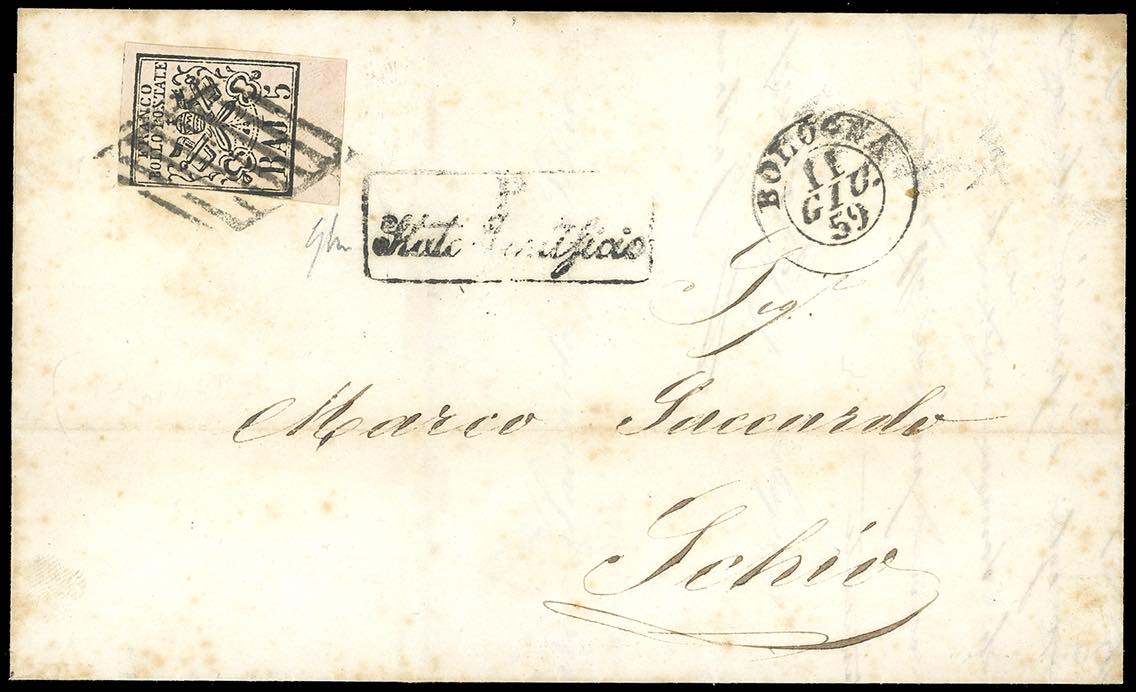 FRANCO
BOLLO POSTALE
BAJ 5
BOLOGNA
11
GIU.
59
Stato Pontificio
Sigr.
Marco Saccardo
Schio